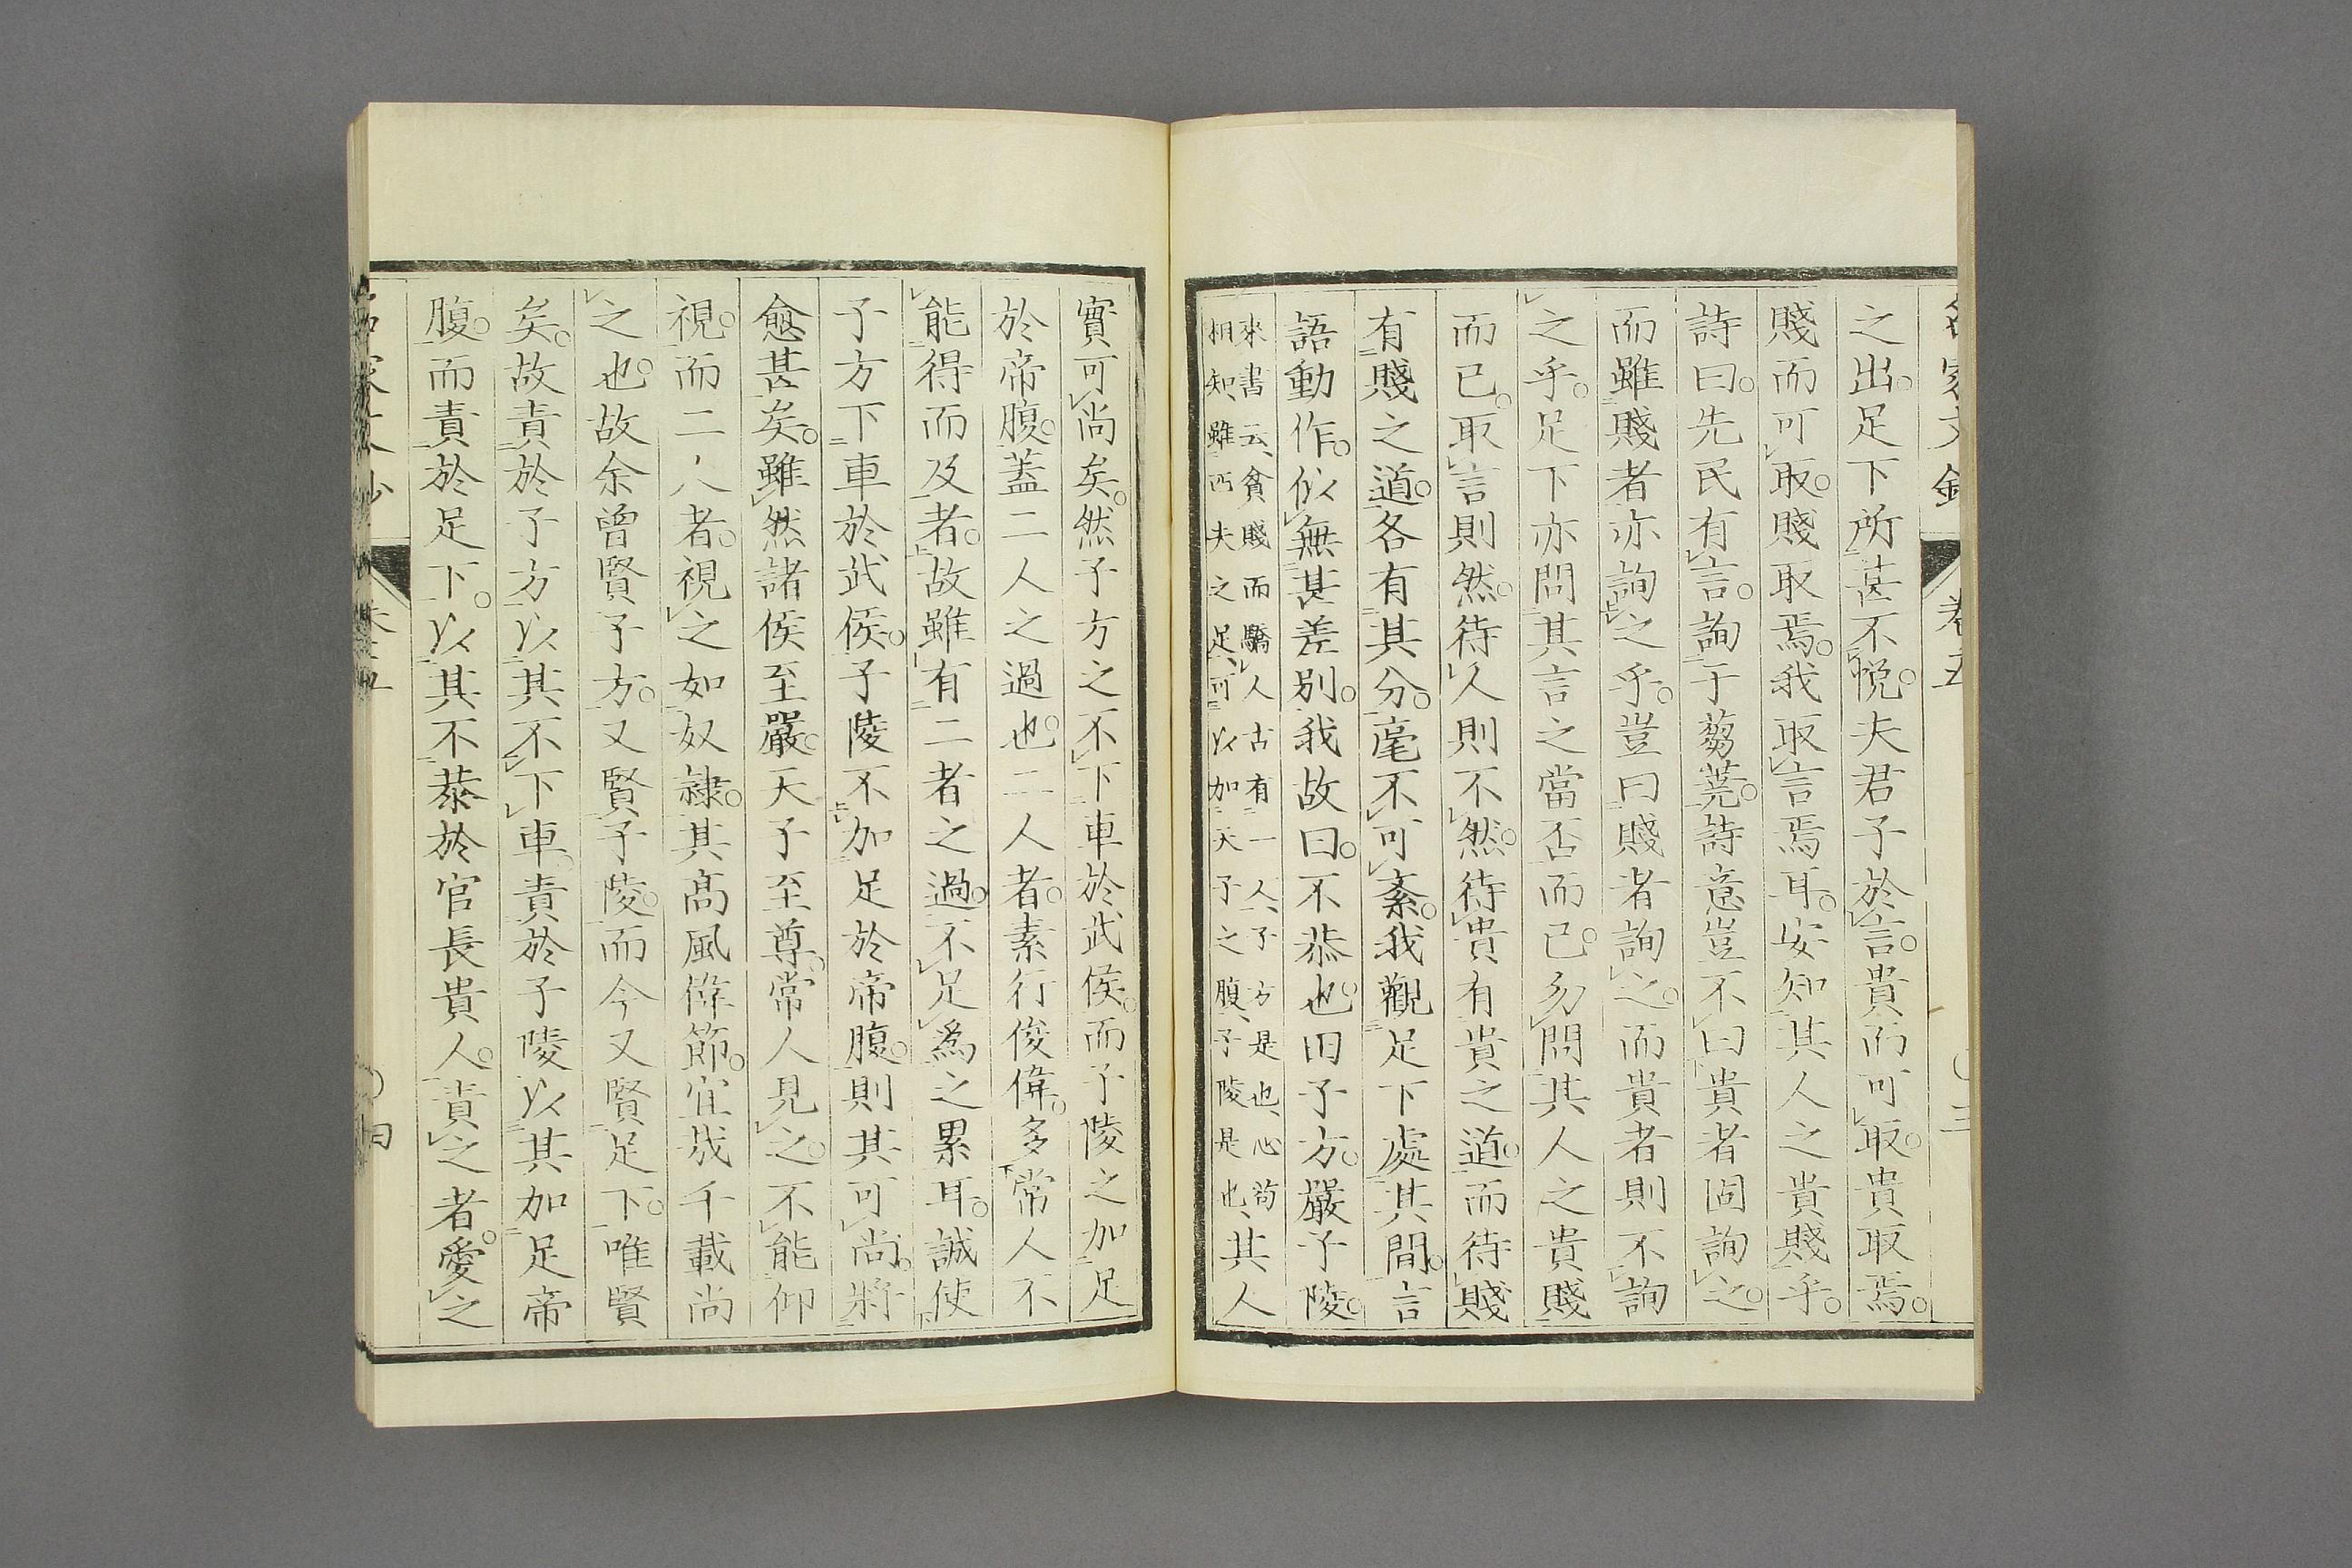 名家文鈔 卷五 〇三
之出。足下所甚不悅。夫君子於言。貴而可取。貴取焉。
賤而可取。賤取焉。我取言焉耳。安知其人之貴賤乎。
詩曰。先民有言。詢于蒭蕘。詩意豈不曰貴者固詢之。
而雖賤者亦詢之乎。豈曰賤者詢之。而貴者則不詢
之乎。足下亦問其言之當否而已。勿問其人之貴賤
而已。取言則然。待人則不然。待貴有貴之道。而待賤
有賤之道。各有其分。毫不可紊。我觀足下處其間。言
語動作。似無甚差別。我故曰。不恭也。旧子方。嚴子陵。
來書云、貧賤而驕人、古有一人、子方是也、心苟
相知、雖匹夫之足、可以加天子之腹、子陵是也、其人
實可尚矣。然子方之不下車於武侯。而子陵之加足
於帝腹。蓋二人之過也。二人者。素行俊偉。多常人不
能得而及者。故雖有二者之過。不足爲之累耳。誠使
子方下車於武侯。子陵不加足於帝腹。則其可尚。將
愈甚矣。雖然諸侯至嚴。天子至尊。常人見之。不能仰
視。而二人者。視之如奴隸。其高風偉節。宜哉千載尚
之也。故余曾賢子方。又賢子陵。而今又賢足下。唯賢
矣。故責於子方以其不下車。責於子陵以其加足帝
腹。而責於足下。以其不恭於官長貴人。責之者。愛之
名家文鈔 卷五 〇四